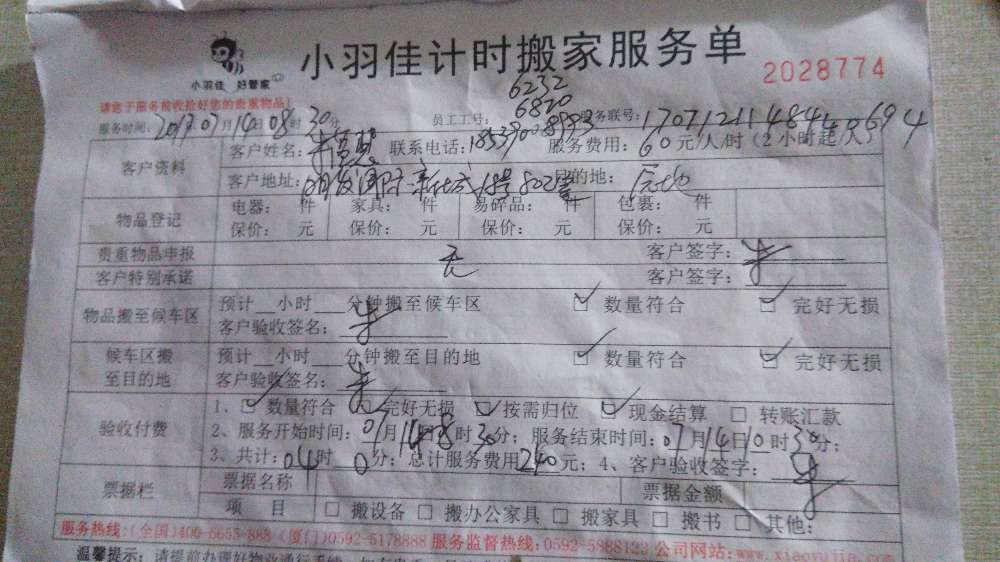 小羽佳计时搬家服务单
小羽佳 好管家
2028774
6232
6820
请您于服务前收拾好您的贵重物品!
服务时间: 2017 07月14日08时30分 员工工号: 服务联号:
客户资料 客户姓名: 联系电话: 服务费用: 60元/人/时(2小时起/人)
客户地址: 新城 802室 目的地:
物品登记 电器: 件 家具: 件 易碎品: 件 包裹: 件
保价: 元 保价: 元 保价: 元 保价: 元
贵重物品申报 无 客户签字:
客户特别承诺 客户签字:
物品搬至候车区 预计__小时__分钟搬至候车区 数量符合 完好无损
客户验收签名:
候车区搬至目的地 预计__小时__分钟搬至目的地 数量符合 完好无损
客户验收签名:
验收付费 1、 数量符合 完好无损 按需归位 现金结算 转账汇款
2、服务开始时间: 07月14日8时30分; 服务结束时间: 07月14日10时30分;
3、共计: 04时0分; 总计服务费用240元; 4、客户验收签字:
票据栏 票据名称 票据金额
项 目 搬设备 搬办公家具 搬家具 搬书 其他:
服务热线:(全国)400-6655-888 (厦门)0592-5178888 服务监督热线:0592-5888123 公司网站:www.xiaoyujia.com
温馨提示:请提前办理好物业通行手续